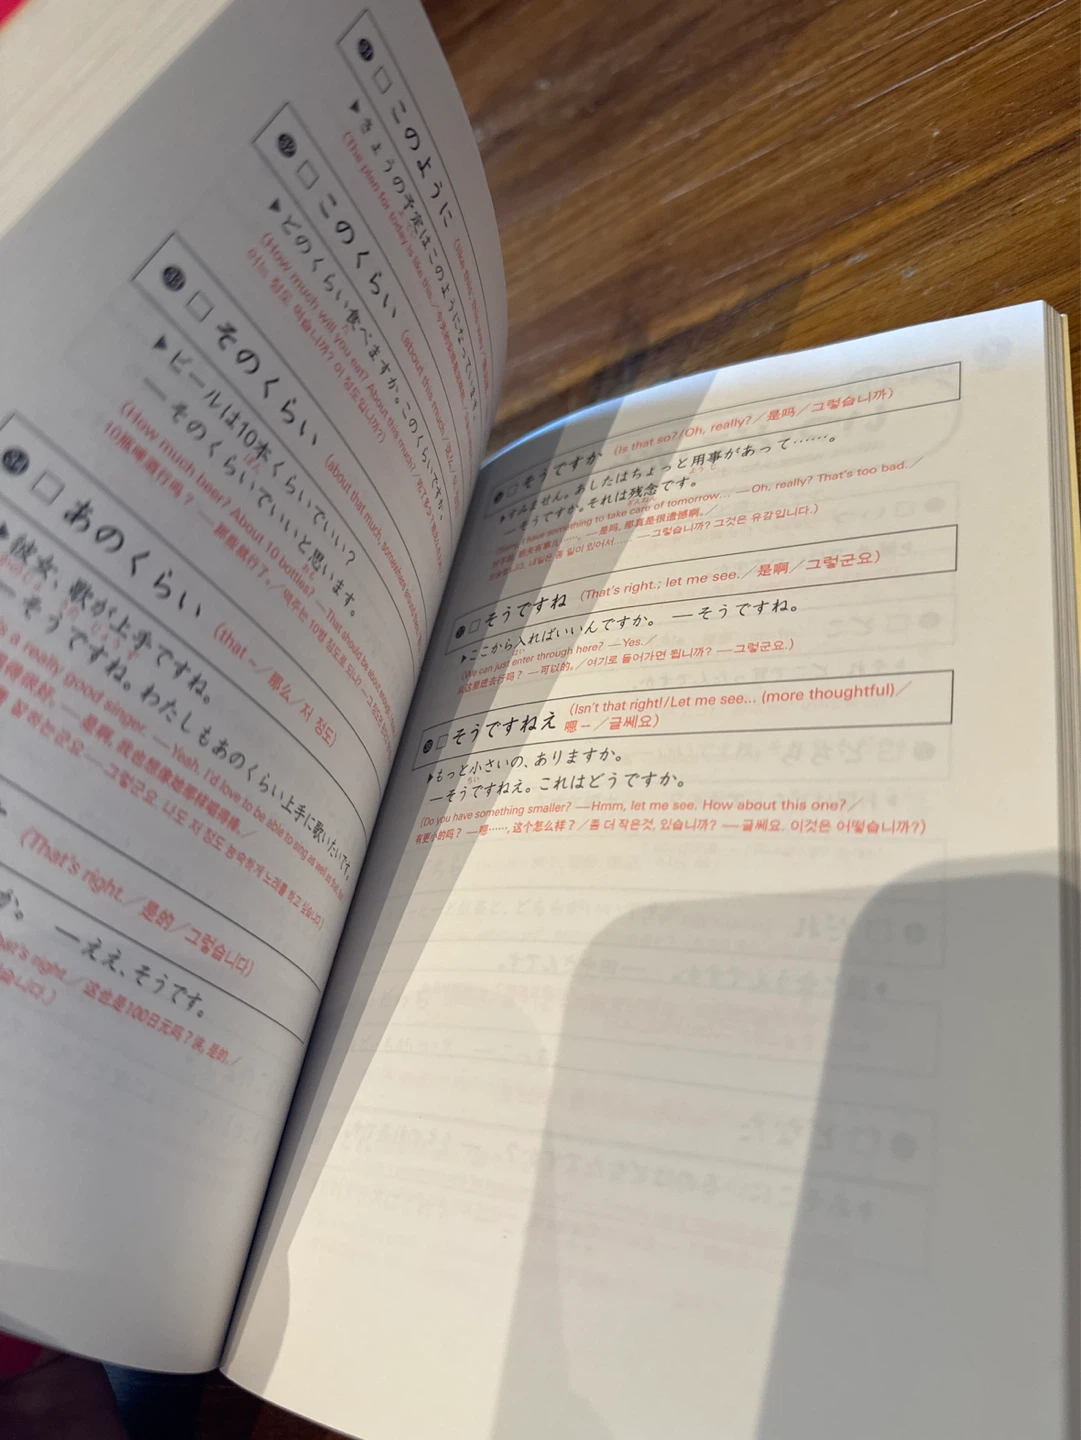 □このように (like this, this way／
▶きょうの予定はこのようになっています。
(The plan for today is like this.／
□このくらい (about this much／
▶どのくらい食べますか。このくらいですか。
(How much will you eat? About this much?／
어느 정도 먹습니까? 이 정도입니까?)
□そのくらい (about that much, somewhere around that
▶ビールは10本くらいでいい?
—そのくらいでいいと思います。
(How much beer? About 10 bottles? —That should be about enough.
10瓶啤酒行吗? —那些就行了。／맥주는 10병 정도로 되나?
34 □あのくらい (that ~／那么／저 정도)
▶彼女、歌が上手ですね。
—そうですね。わたしもあのくらい上手に歌いたいです。
a really good singer. —Yeah. I'd love to be able to sing as well as
唱得很好。—是啊。我也想像她那样唱得棒。／
잘 하는군요 —그렇군요. 나도 저 정도 능숙하게 노래를 하고 싶습니다)
(That's right.／是的／그렇습니다)
か。 —ええ、そうです。
that's right.／这也是100日元吗?诶,是的。／
습니다.)
□そうですか (Is that so?/Oh, really?／是吗／그렇습니까)
▶すみません。あしたはちょっと用事があって……。
—そうですか。それは残念です。
I have something to take care of tomorrow... —Oh, really? That's too bad.／
明天有事儿……。—是吗,那真是很遗憾啊。／
내일은 좀 일이 있어서…… —그렇습니까? 그것은 유감입니다.)
□そうですね (That's right.; let me see.／是啊／그렇군요)
▶ここから入ればいいんですか。 —そうですね。
(We can just enter through here? —Yes.／
从这里进去行吗? —可以的。／여기로 들어가면 됩니까? —그렇군요.)
□そうですねえ (Isn't that right!/Let me see... (more thoughtful)／
嗯～／글쎄요)
▶もっと小さいの、ありますか。
—そうですねえ。これはどうですか。
(Do you have something smaller? —Hmm, let me see. How about this one?／
有更小的吗? —嗯……,这个怎么样?／좀 더 작은것, 있습니까? —글쎄요. 이것은 어떻습니까?)